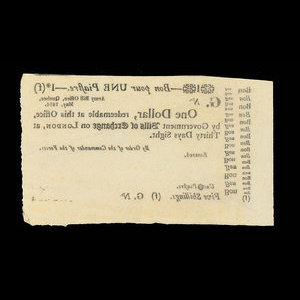 1—Bon pour UNE Piastre.—1*)(f)
Army Bill Office, Quebec,
May, 1814.
G. Nº
One Dollar, redeemable at this Office,
by Government Bills of Exchange on London, at
Thirty Days Sight.
By Order of the Commander of the Forces.
Entered,
Bon
Bon
Bon
Bon
Bon
Bon
Bon
Bon
Bon
Bon
Un Piastre.
Five Shillings (f) G. Nº
(f)